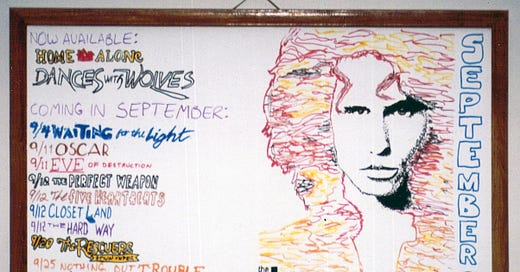 NOW AVAILABLE:
HOME ALONE
DANCES WITH WOLVES
COMING IN SEPTEMBER:
9/4 WAITING for the Light
9/11 OSCAR
9/11 EVE OF DESTRUCTION
9/12 THE PERFECT WEAPON
9/12 The FIVE HEARTBEATS
9/12 CLOSET LAND
9/12 THE HARD WAY
9/20 The RESCUERS
DOWN UNDER
9/25 NOTHING BUT TROUBLE
the
SEPTEMBER